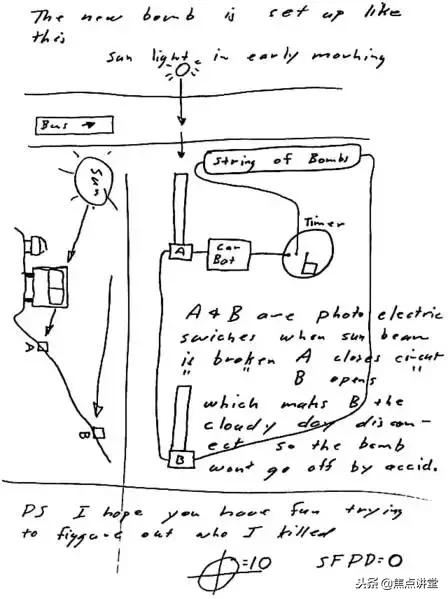 The new bomb is set up like
this
sun light in early morning
Bus
Sun
String of Bombs
Timer
A
Car
Bat
A
B
A & B are photo electric
swiches when sun beam
is broken A closes circut
" " B opens "
which maks B the
cloudy day discon-
ect so the bomb
wont go off by accid.
B
PS I hope you have fun trying
to figgure out who I killed
=10 SFPD=0
头条 @焦点讲堂